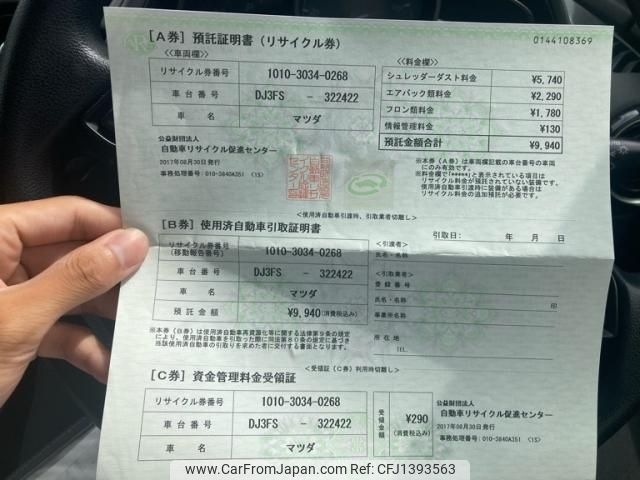 0144108369
[A券] 預託証明書 (リサイクル券)
<<車両欄>>
リサイクル券番号 1010-3034-0268
車台番号 DJ3FS - 322422
車名 マツダ
公益財団法人
自動車リサイクル促進センター
2017年08月30日発行
事務処理番号：010-3840A351 (1S)
<<料金欄>>
シュレッダーダスト料金 ¥5,740
エアバッグ類料金 ¥2,290
フロン類料金 ¥1,780
情報管理料金 ¥130
預託金額合計 ¥9,940
※本券（A券）は車両欄記載の車台番号の車両
にのみ有効です。
※料金欄で「*****」と表示されている項目は
リサイクル料金が預託されていない装備です。
使用済自動車引渡時に装備がある場合は
リサイクル料金の追加預託が必要です。
<使用済自動車引渡時、引取業者切離し>
[B券] 使用済自動車引取証明書
引取日： 年 月 日
リサイクル券番号
(移動報告番号) 1010-3034-0268
車台番号 DJ3FS - 322422
車名 マツダ
預託金額 ¥9,940(消費税込み)
<引渡者>
氏名・名称
<引取業者>
登録番号
氏名・名称 印
事業所名称
所在地
TEL
※本券（B券）は使用済自動車再資源化等に関する法律第9条の規定
により、使用済自動車を引取った際に同法第80条の規定に基づき
当該使用済自動車の引取りを求めた者に交付する書面となります。
<受領証（C券）利用時切離し>
[C券] 資金管理料金受領証
リサイクル券番号 1010-3034-0268
車台番号 DJ3FS - 322422
車名 マツダ
受領金額 ¥290
(消費税込み)
公益財団法人
自動車リサイクル促進センター
2017年08月30日発行
事務処理番号：010-3840A351 (1S)
www.CarFromJapan.com - CFJ1393563